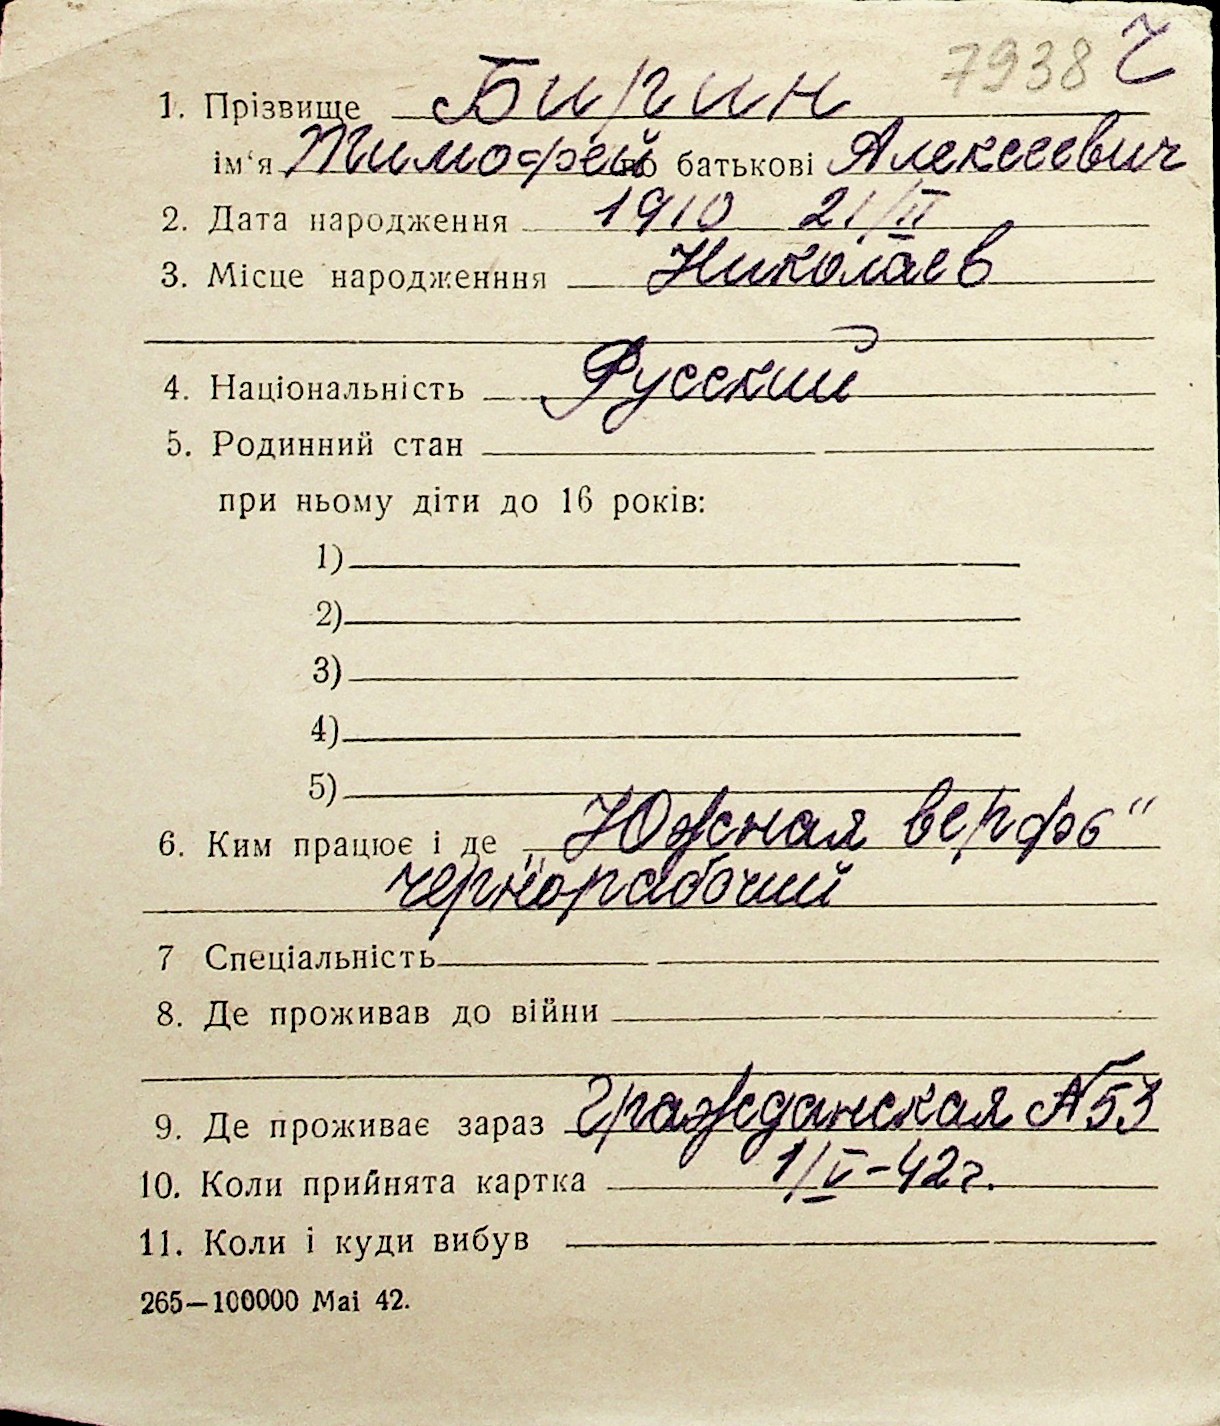 7938 Ч
1. Прізвище Бирин
ім'я Тимофей по батькові Алексеевич
2. Дата народження 1910 21/II
3. Місце народженння Николаев
4. Національність Русский
5. Родинний стан
при ньому діти до 16 років:
1)
2)
3)
4)
5)
6. Ким працює і де „Южная верфь"
чернорабочий
7 Спеціальність
8. Де проживав до війни
9. Де проживає зараз Гражданская №53
10. Коли прийнята картка 1/V-42г.
11. Коли і куди вибув
265—100000 Mai 42.